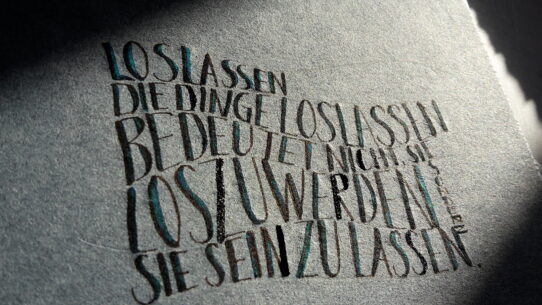 LOSLASSEN
DIE DINGE LOSLASSEN
BEDEUTET NICHT, SIE
LOSZUWERDEN
SIE SEIN ZU LASSEN.